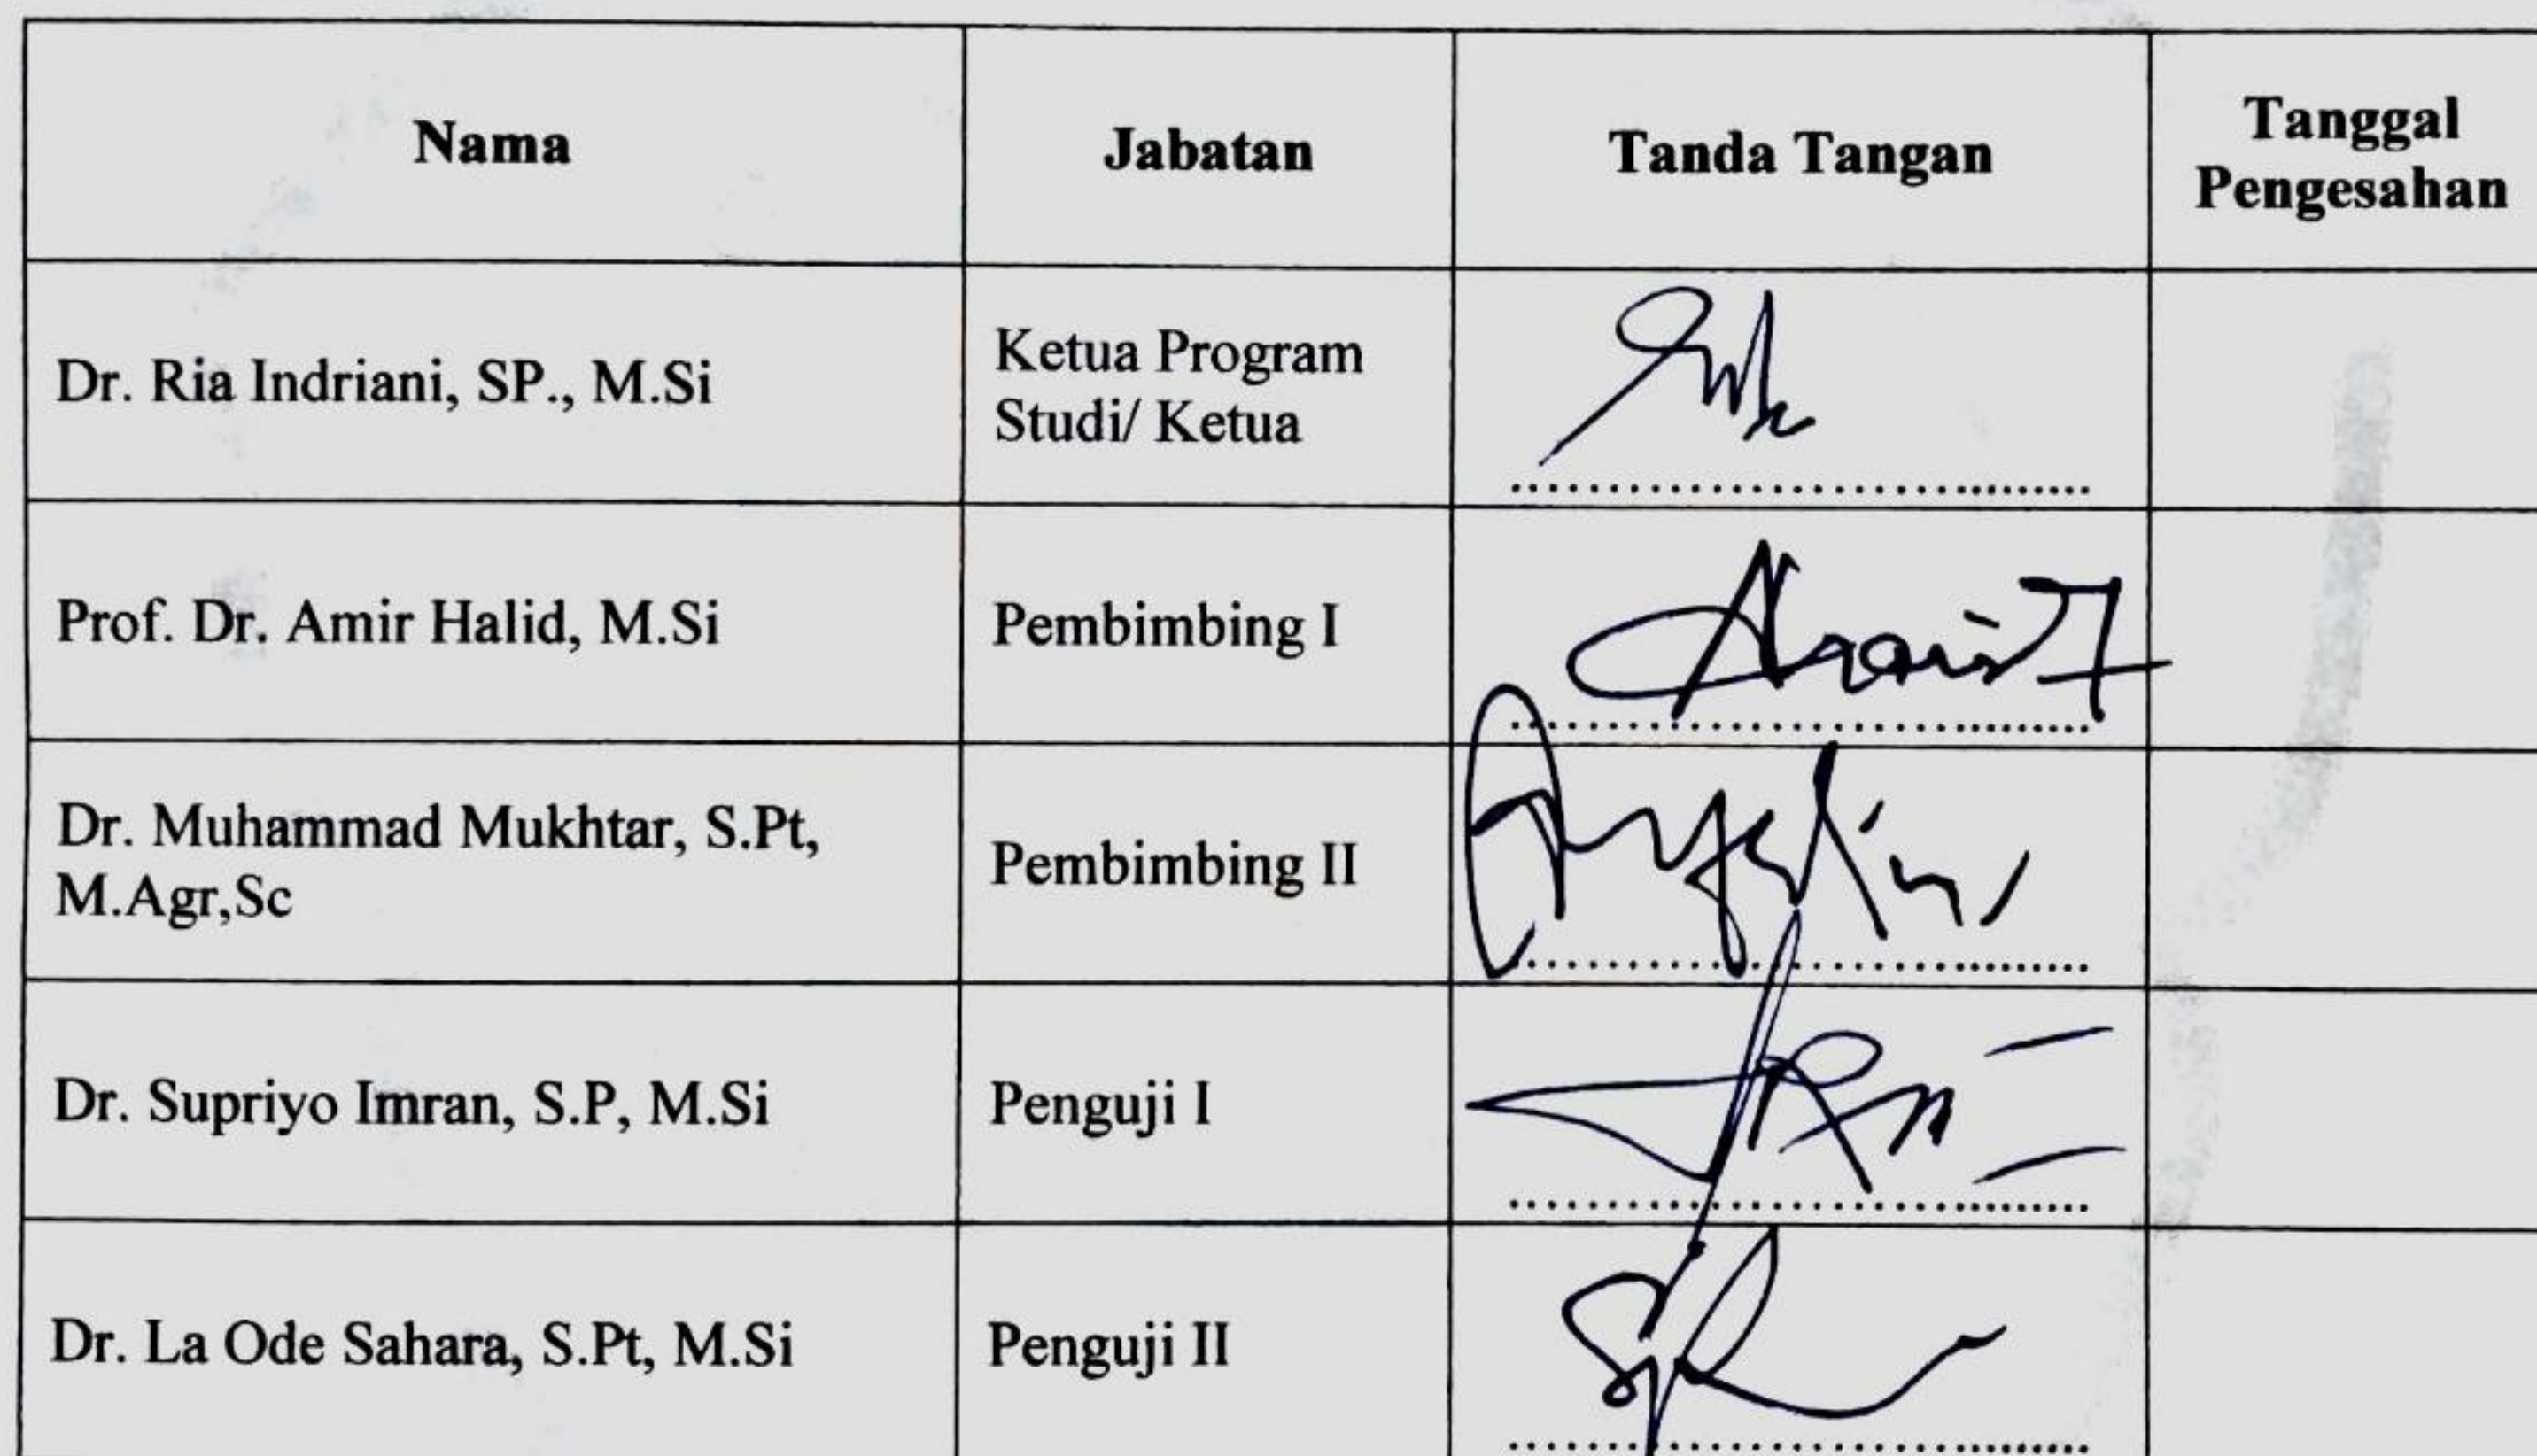 Nama
Jabatan
Tanda Tangan
Tanggal
Pengesahan
Dr. Ria Indriani, SP., M.Si
Ketua Program
Studi/ Ketua
Prof. Dr. Amir Halid, M.Si
Pembimbing I
Dr. Muhammad Mukhtar, S.Pt,
M.Agr,Sc
Pembimbing II
Dr. Supriyo Imran, S.P, M.Si
Penguji I
Dr. La Ode Sahara, S.Pt, M.Si
Penguji II